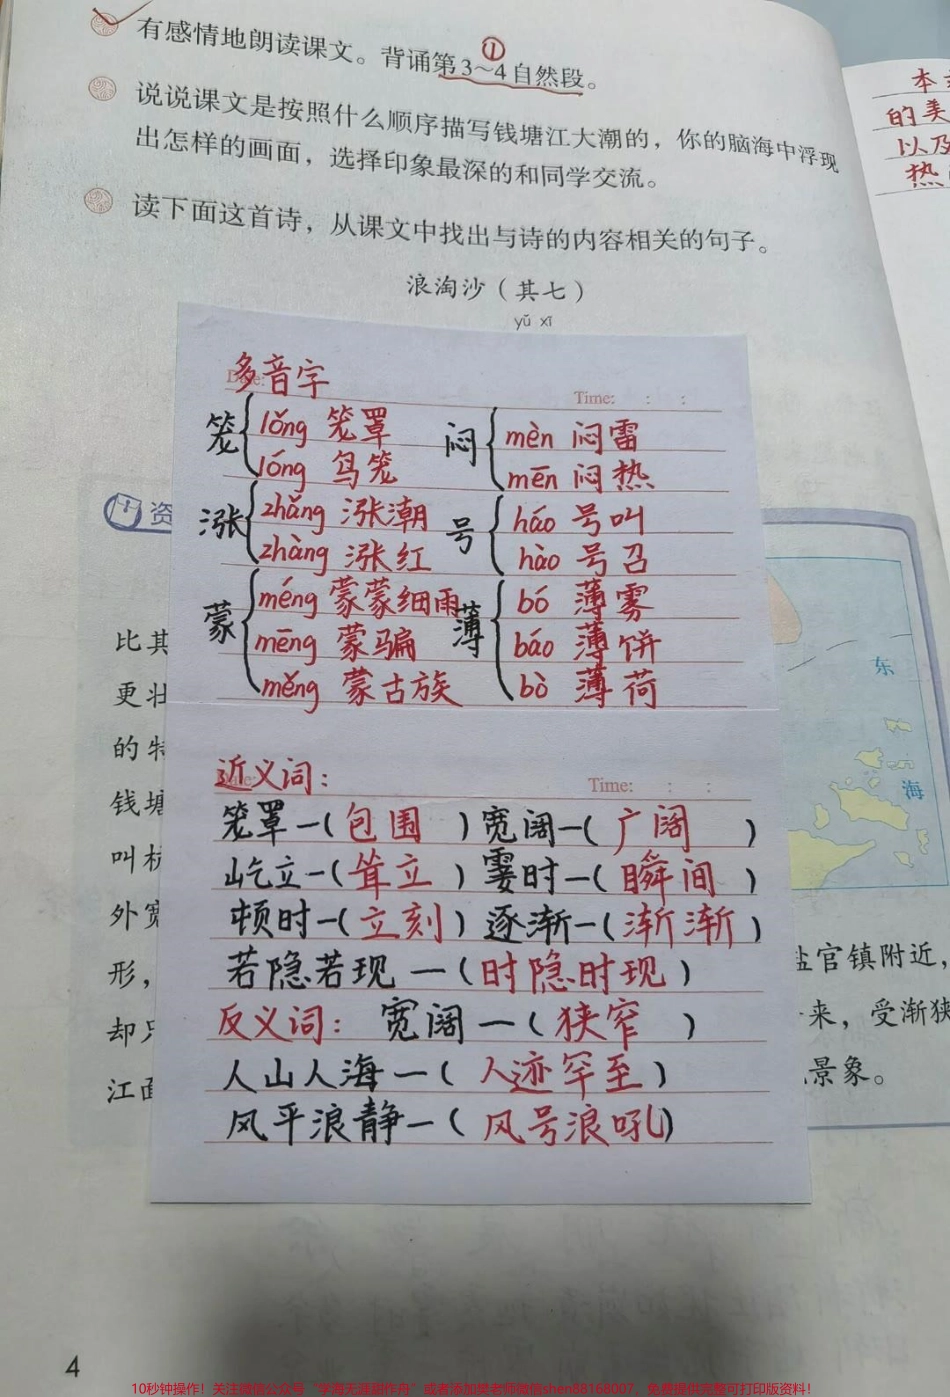 有感情地朗读课文。背诵第3～4自然段。
①
说说课文是按照什么顺序描写钱塘江大潮的，你的脑海中浮现
出怎样的画面，选择印象最深的和同学交流。
读下面这首诗，从课文中找出与诗的内容相关的句子。
浪淘沙（其七）
yǔ xī
本
的美
以及
热
多音字
Time: : :
笼 lǒng 笼罩
lóng 鸟笼
闷 mèn 闷雷
mēn 闷热
涨 zhǎng 涨潮
zhàng 涨红
号 háo 号叫
hào 号召
蒙 méng 蒙蒙细雨
mēng 蒙骗
měng 蒙古族
薄 bó 薄雾
báo 薄饼
bò 薄荷
近义词：
Time: : :
笼罩—(包围) 宽阔—(广阔)
屹立—(耸立) 霎时—(瞬间)
顿时—(立刻) 逐渐—(渐渐)
若隐若现—(时隐时现)
反义词： 宽阔—(狭窄)
人山人海—(人迹罕至)
风平浪静—(风号浪吼)
资
比其
更壮
的特
钱塘
叫杭
外宽
形，
却只
江面
东
海
盐官镇附近，
来，受渐狭
景象。
4
10秒钟操作！关注微信公众号“学海无涯甜作舟”或者添加樊老师微信shen88168007，免费提供完整可打印版资料！